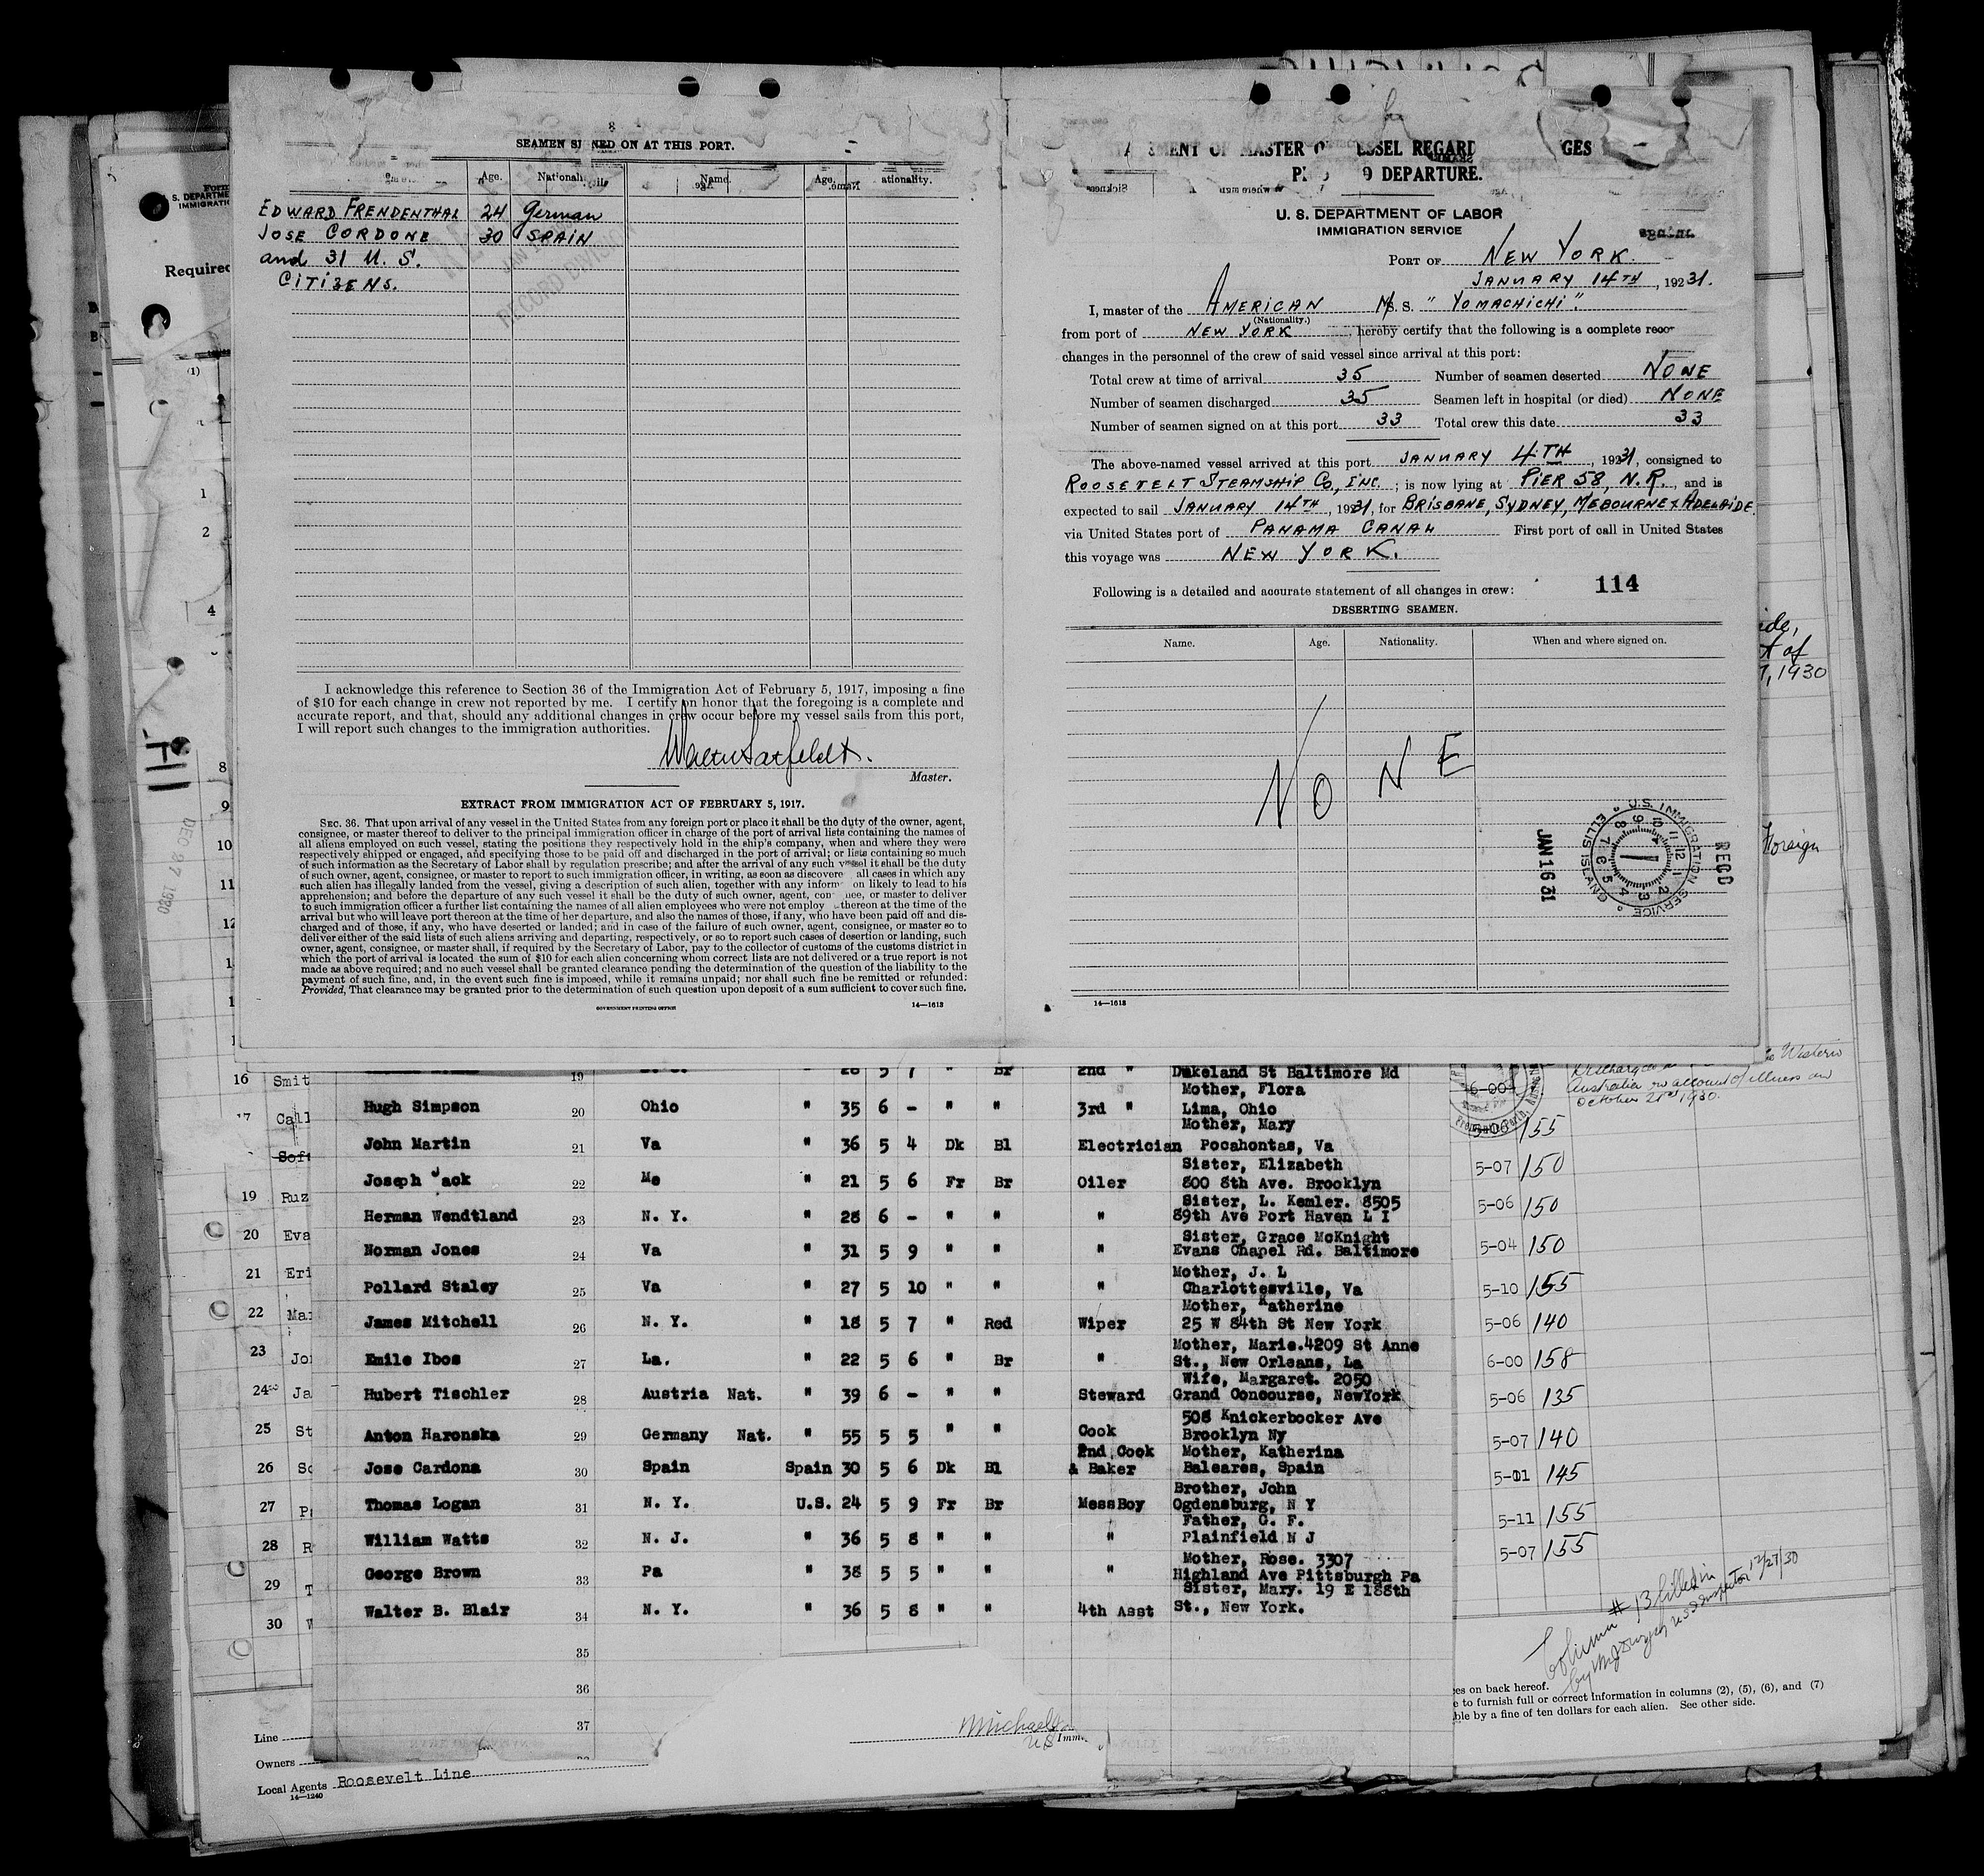 8
SEAMEN SI NED ON AT THIS PORT.
Age. Nationali Name. Age. ationality.
EDWARD FRENDENTHAL 24 German
JOSE CORDONE 30 SPAIN
and 31 U. S.
CITIZENS.
RECORD DIVISION
I acknowledge this reference to Section 36 of the Immigration Act of February 5, 1917, imposing a fine
of $10 for each change in crew not reported by me. I certify on honor that the foregoing is a complete and
accurate report, and that, should any additional changes in crew occur before my vessel sails from this port,
I will report such changes to the immigration authorities.
Master.
EXTRACT FROM IMMIGRATION ACT OF FEBRUARY 5, 1917.
SEC. 36. That upon arrival of any vessel in the United States from any foreign port or place it shall be the duty of the owner, agent,
consignee, or master thereof to deliver to the principal immigration officer in charge of the port of arrival lists containing the names of
all aliens employed on such vessel, stating the positions they respectively hold in the ship's company, when and where they were
respectively shipped or engaged, and specifying those to be paid off and discharged in the port of arrival; or lists containing so much
of such information as the Secretary of Labor shall by regulation prescribe; and after the arrival of any such vessel it shall be the duty
of such owner, agent, consignee, or master to report to such immigration officer, in writing, as soon as discovere all cases in which any
such alien has illegally landed from the vessel, giving a description of such alien, together with any inform on likely to lead to his
apprehension; and before the departure of any such vessel it shall be the duty of such owner, agent, con nee, or master to deliver
to such immigration officer a further list containing the names of all alien employees who were not employ thereon at the time of the
arrival but who will leave port thereon at the time of her departure, and also the names of those, if any, who have been paid off and dis-
charged and of those, if any, who have deserted or landed; and in case of the failure of such owner, agent, consignee, or master so to
deliver either of the said lists of such aliens arriving and departing, respectively, or so to report such cases of desertion or landing, such
owner, agent, consignee, or master shall, if required by the Secretary of Labor, pay to the collector of customs of the customs district in
which the port of arrival is located the sum of $10 for each alien concerning whom correct lists are not delivered or a true report is not
made as above required; and no such vessel shall be granted clearance pending the determination of the question of the liability to the
payment of such fine, and, in the event such fine is imposed, while it remains unpaid; nor shall such fine be remitted or refunded:
Provided, That clearance may be granted prior to the determination of such question upon deposit of a sum sufficient to cover such fine.
GOVERNMENT PRINTING OFFICE 14—1613
MENT OF MASTER O ESSEL REGARD GES
P O DEPARTURE.
U. S. DEPARTMENT OF LABOR
IMMIGRATION SERVICE
PORT OF NEW YORK.
JANUARY 14TH, 1931.
I, master of the AMERICAN M/S. S. "YOMACHICHI".
(Nationality.)
from port of NEW YORK hereby certify that the following is a complete reco
changes in the personnel of the crew of said vessel since arrival at this port:
Total crew at time of arrival 35 Number of seamen deserted NONE
Number of seamen discharged 35 Seamen left in hospital (or died) NONE
Number of seamen signed on at this port 33 Total crew this date 33
The above-named vessel arrived at this port JANUARY 4TH, 1931, consigned to
ROOSEVELT STEAMSHIP CO., INC. ; is now lying at PIER 58, N.R., and is
expected to sail JANUARY 14TH, 1931, for BRISBANE, SYDNEY, MEBOURNE & ADELAIDE
via United States port of PANAMA CANAL First port of call in United States
this voyage was NEW YORK.
Following is a detailed and accurate statement of all changes in crew: 114
DESERTING SEAMEN.
Name. Age. Nationality. When and where signed on.
NONE
U.S. IMMIGRATION SERVICE
ELLIS ISLAND
JAN 16 31
RECD
14—1613
S. DEPARTME
IMMIGRATI
Required
(1)
1
2
4
8
9
10
11
12
DEC 27 1930
ide,
t of
7, 1930
Foreign
Western
Discharged in
Australia on account of illness on
October 21st 1930.
19 28 5 7 " Br 2nd " Dukeland St Baltimore Md
Hugh Simpson 20 Ohio " 35 6 - " " 3rd " Mother, Flora
Lima, Ohio
John Martin 21 Va " 36 5 4 Dk Bl Electrician Mother, Mary
Pocahontas, Va
Joseph Jack 22 Me " 21 5 6 Fr Br Oiler Sister, Elizabeth
800 8th Ave. Brooklyn
Herman Wendtland 23 N. Y. " 28 6 - " " " Sister, L. Kemler. 8505
89th Ave Port Haven L I
Norman Jones 24 Va " 31 5 9 " " " Sister, Grace McKnight
Evans Chapel Rd. Baltimore
Pollard Staley 25 Va " 27 5 10 " " " Mother, J. L
Charlottesville, Va
James Mitchell 26 N. Y. " 18 5 7 " Red Wiper Mother, Katherine
25 W 84th St New York
Emile Ibos 27 La. " 22 5 6 " Br " Mother, Marie.4209 St Anne
St., New Orleans, La
Hubert Tischler 28 Austria Nat. " 39 6 - " " Steward Wife, Margaret. 2050
Grand Concourse, NewYork
Anton Haronska 29 Germany Nat. " 55 5 5 " " Cook 508 Knickerbocker Ave
Brooklyn Ny
Jose Cardona 30 Spain Spain 30 5 6 Dk Bl 2nd Cook & Baker Mother, Katherina
Baleares, Spain
Thomas Logan 31 N. Y. U.S. 24 5 9 Fr Br MessBoy Brother, John
Ogdensburg, N Y
William Watts 32 N. J. " 36 5 8 " " " Father, G. F.
Plainfield N J
George Brown 33 Pa " 38 5 5 " " " Mother, Rose. 3307
Highland Ave Pittsburgh Pa
Walter B. Blair 34 N. Y. " 36 5 8 " " 4th Asst Sister, Mary. 19 E 188th
St., New York.
35
36
37
16 Smit
17 Call
Soft
19 Ruz
20 Eva
21 Eri
22 Mar
23 Joh
24 Ja
25 St
26 Sc
27 P
28 R
29 T
30 W
6-00
5-06 155
5-07 150
5-06 150
5-04 150
5-10 155
5-06 140
6-00 158
5-06 135
5-07 140
5-01 145
5-11 155
5-07 155
Column #13 filled in
12/27/30
es on back hereof.
e to furnish full or correct information in columns (2), (5), (6), and (7)
ble by a fine of ten dollars for each alien. See other side.
Line
Owners
Local Agents Roosevelt Line
14—1240
U S Imm